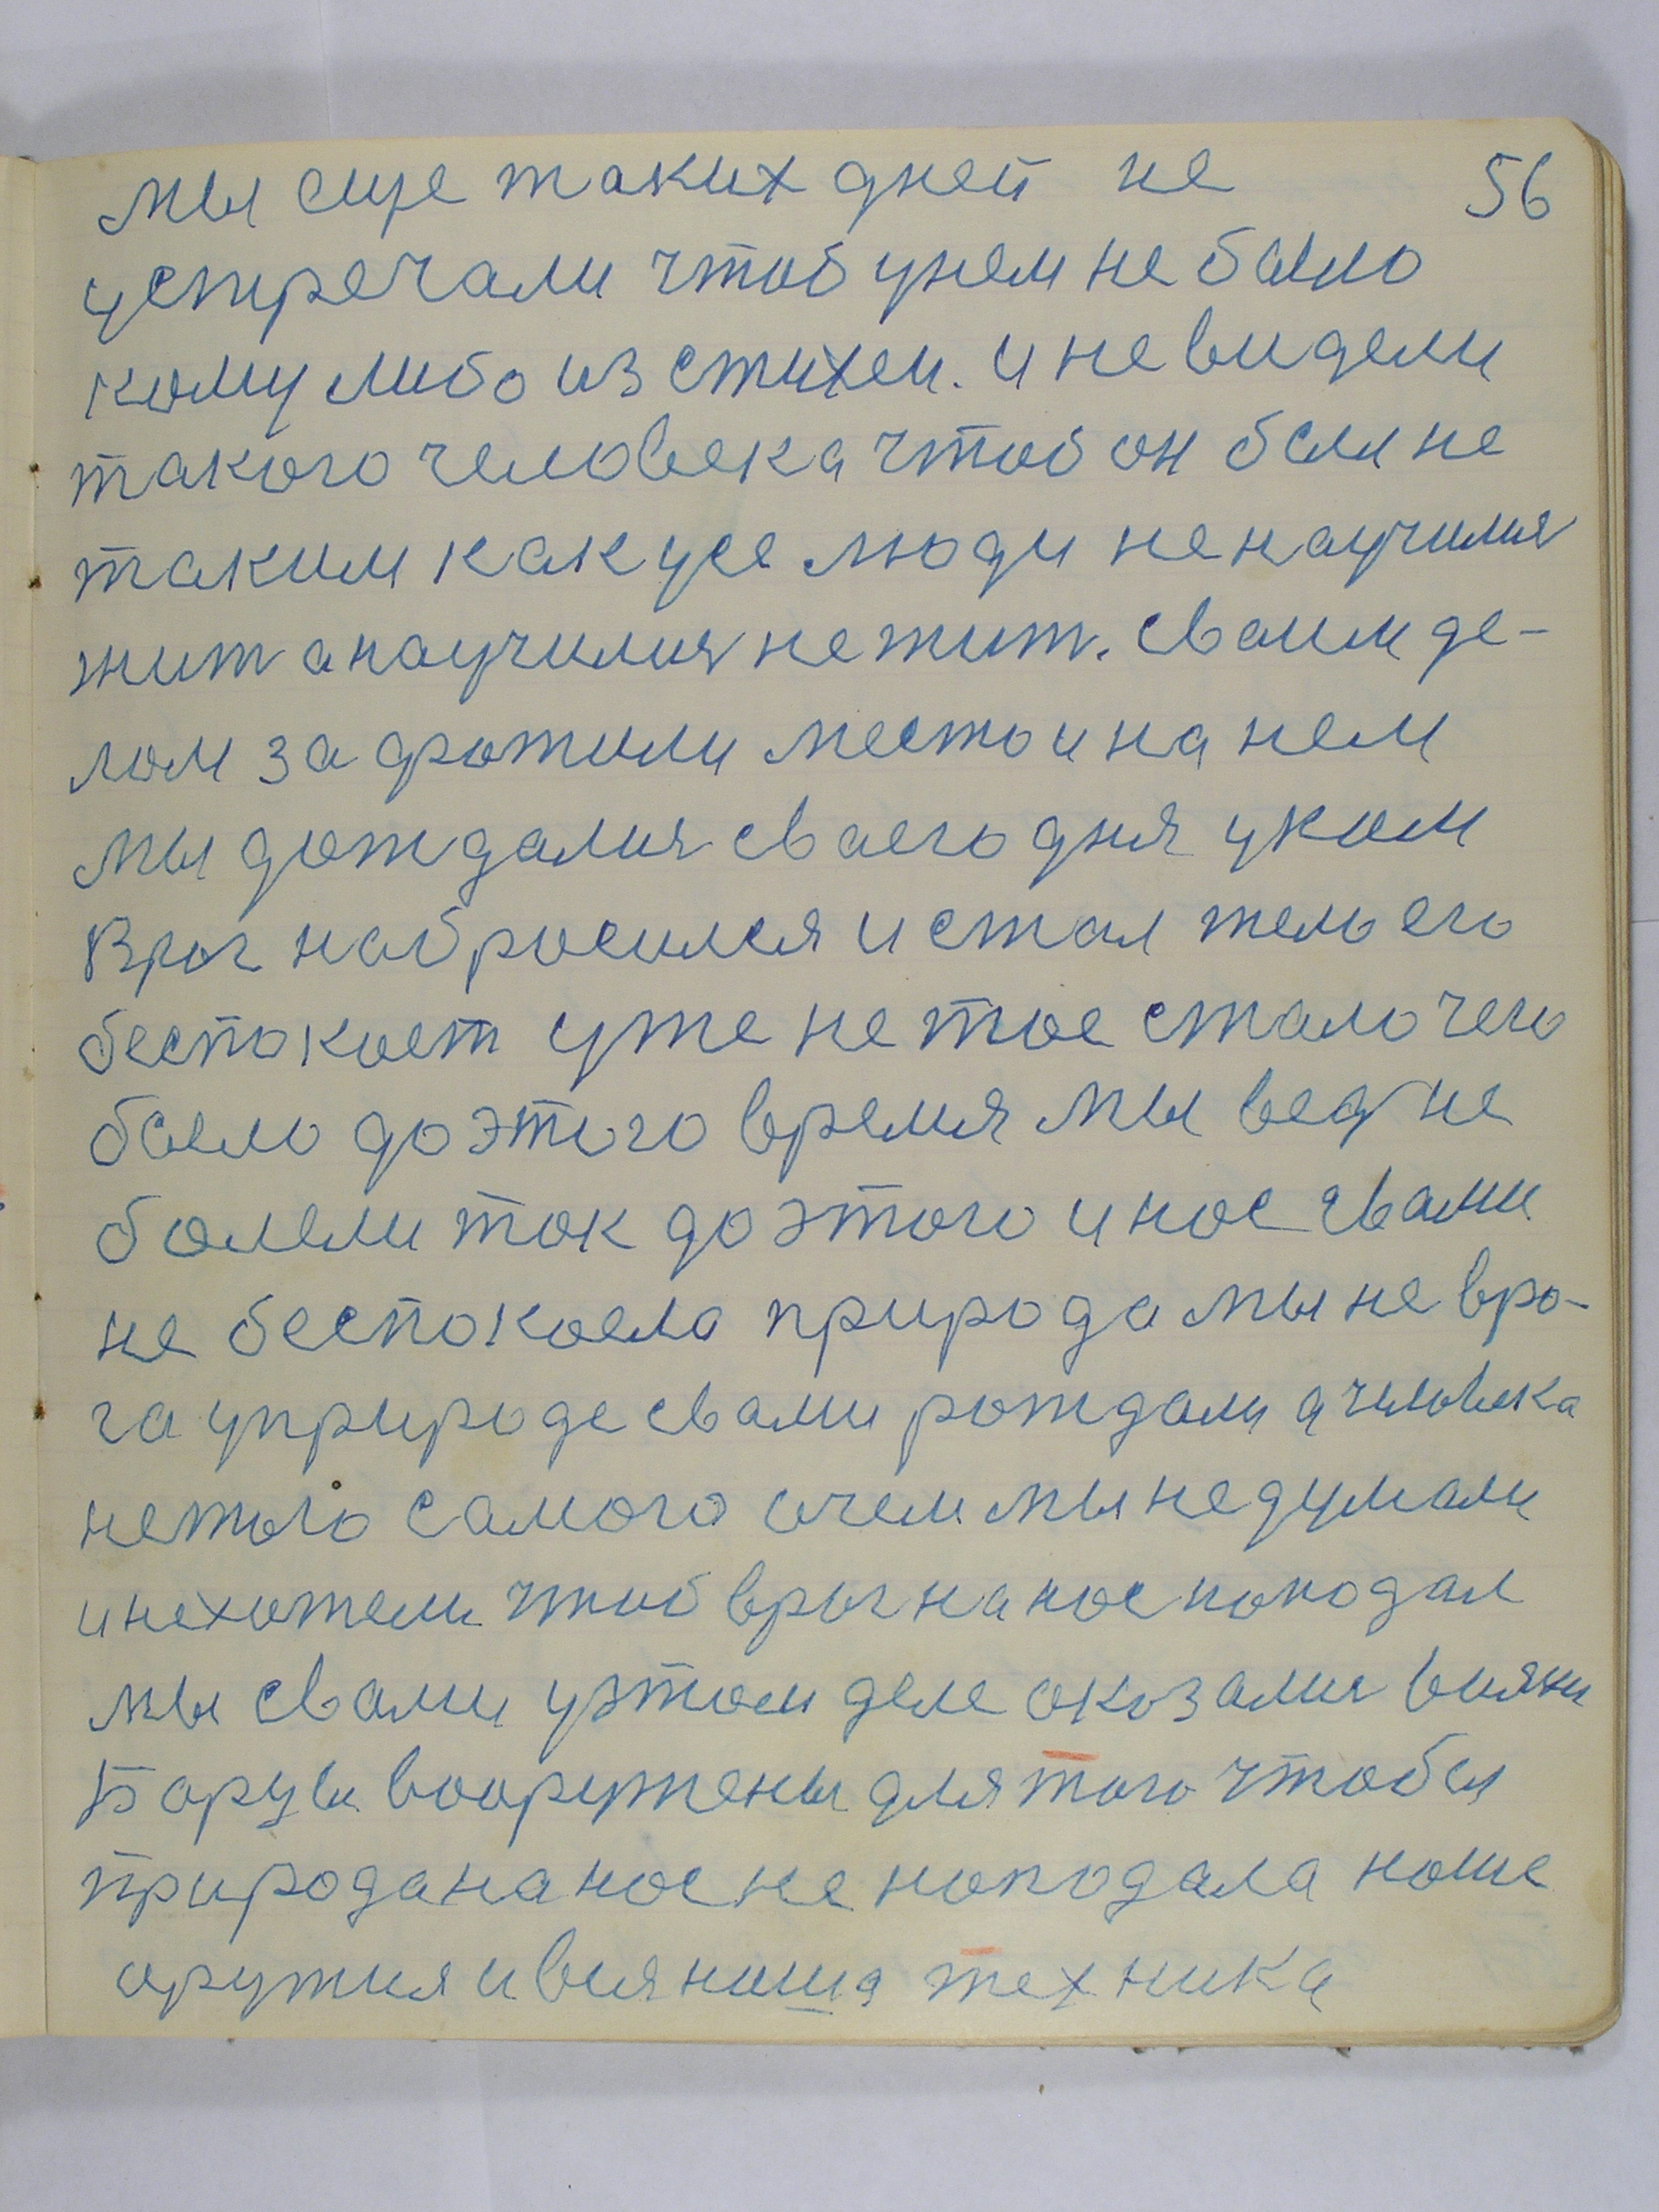 мы еще таких дней не 56
устречали чтоб унем не было
кому либо из стихеи. и не видели
такого человека чтоб он был не
таким как усе люди не научился
жит а научился не жит. сваим де-
лом за фотили место и на нем
мы дождался сваего дня уком
Враг набросился и стал тело его
беспокоет уже не тое стало чего
было до этого время мы вед не
болели так до этого и нас свами
не беспокоела природа мы не вра-
га уприроде свами рождали а человека
не того самого очем мы не думали
и не хотели чтоб враг на нас нападал
мы свами уэтом деле оказался
вооружены для того чтобы
природа на нас не нападала наше
оружия и вия наша техника